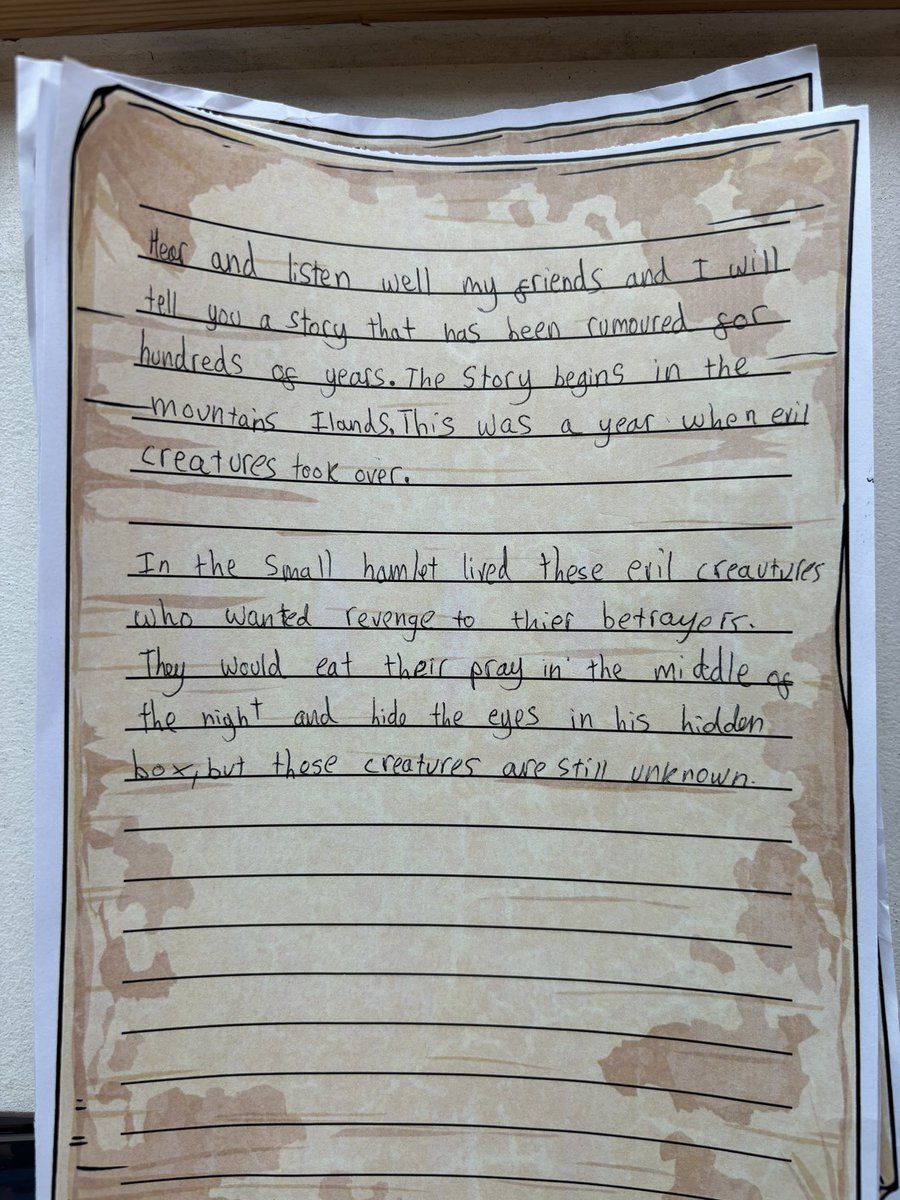 Hear and listen well my friends and I will
tell you a story that has been rumoured for
hundreds of years. The Story begins in the
mountains Ilands. This was a year when evil
creatures took over.
In the Small hamlet lived these evil creautures
who wanted revenge to thier betrayers.
They would eat their pray in the middle of
the night and hide the eyes in his hidden
box, but those creatures are still unknown.